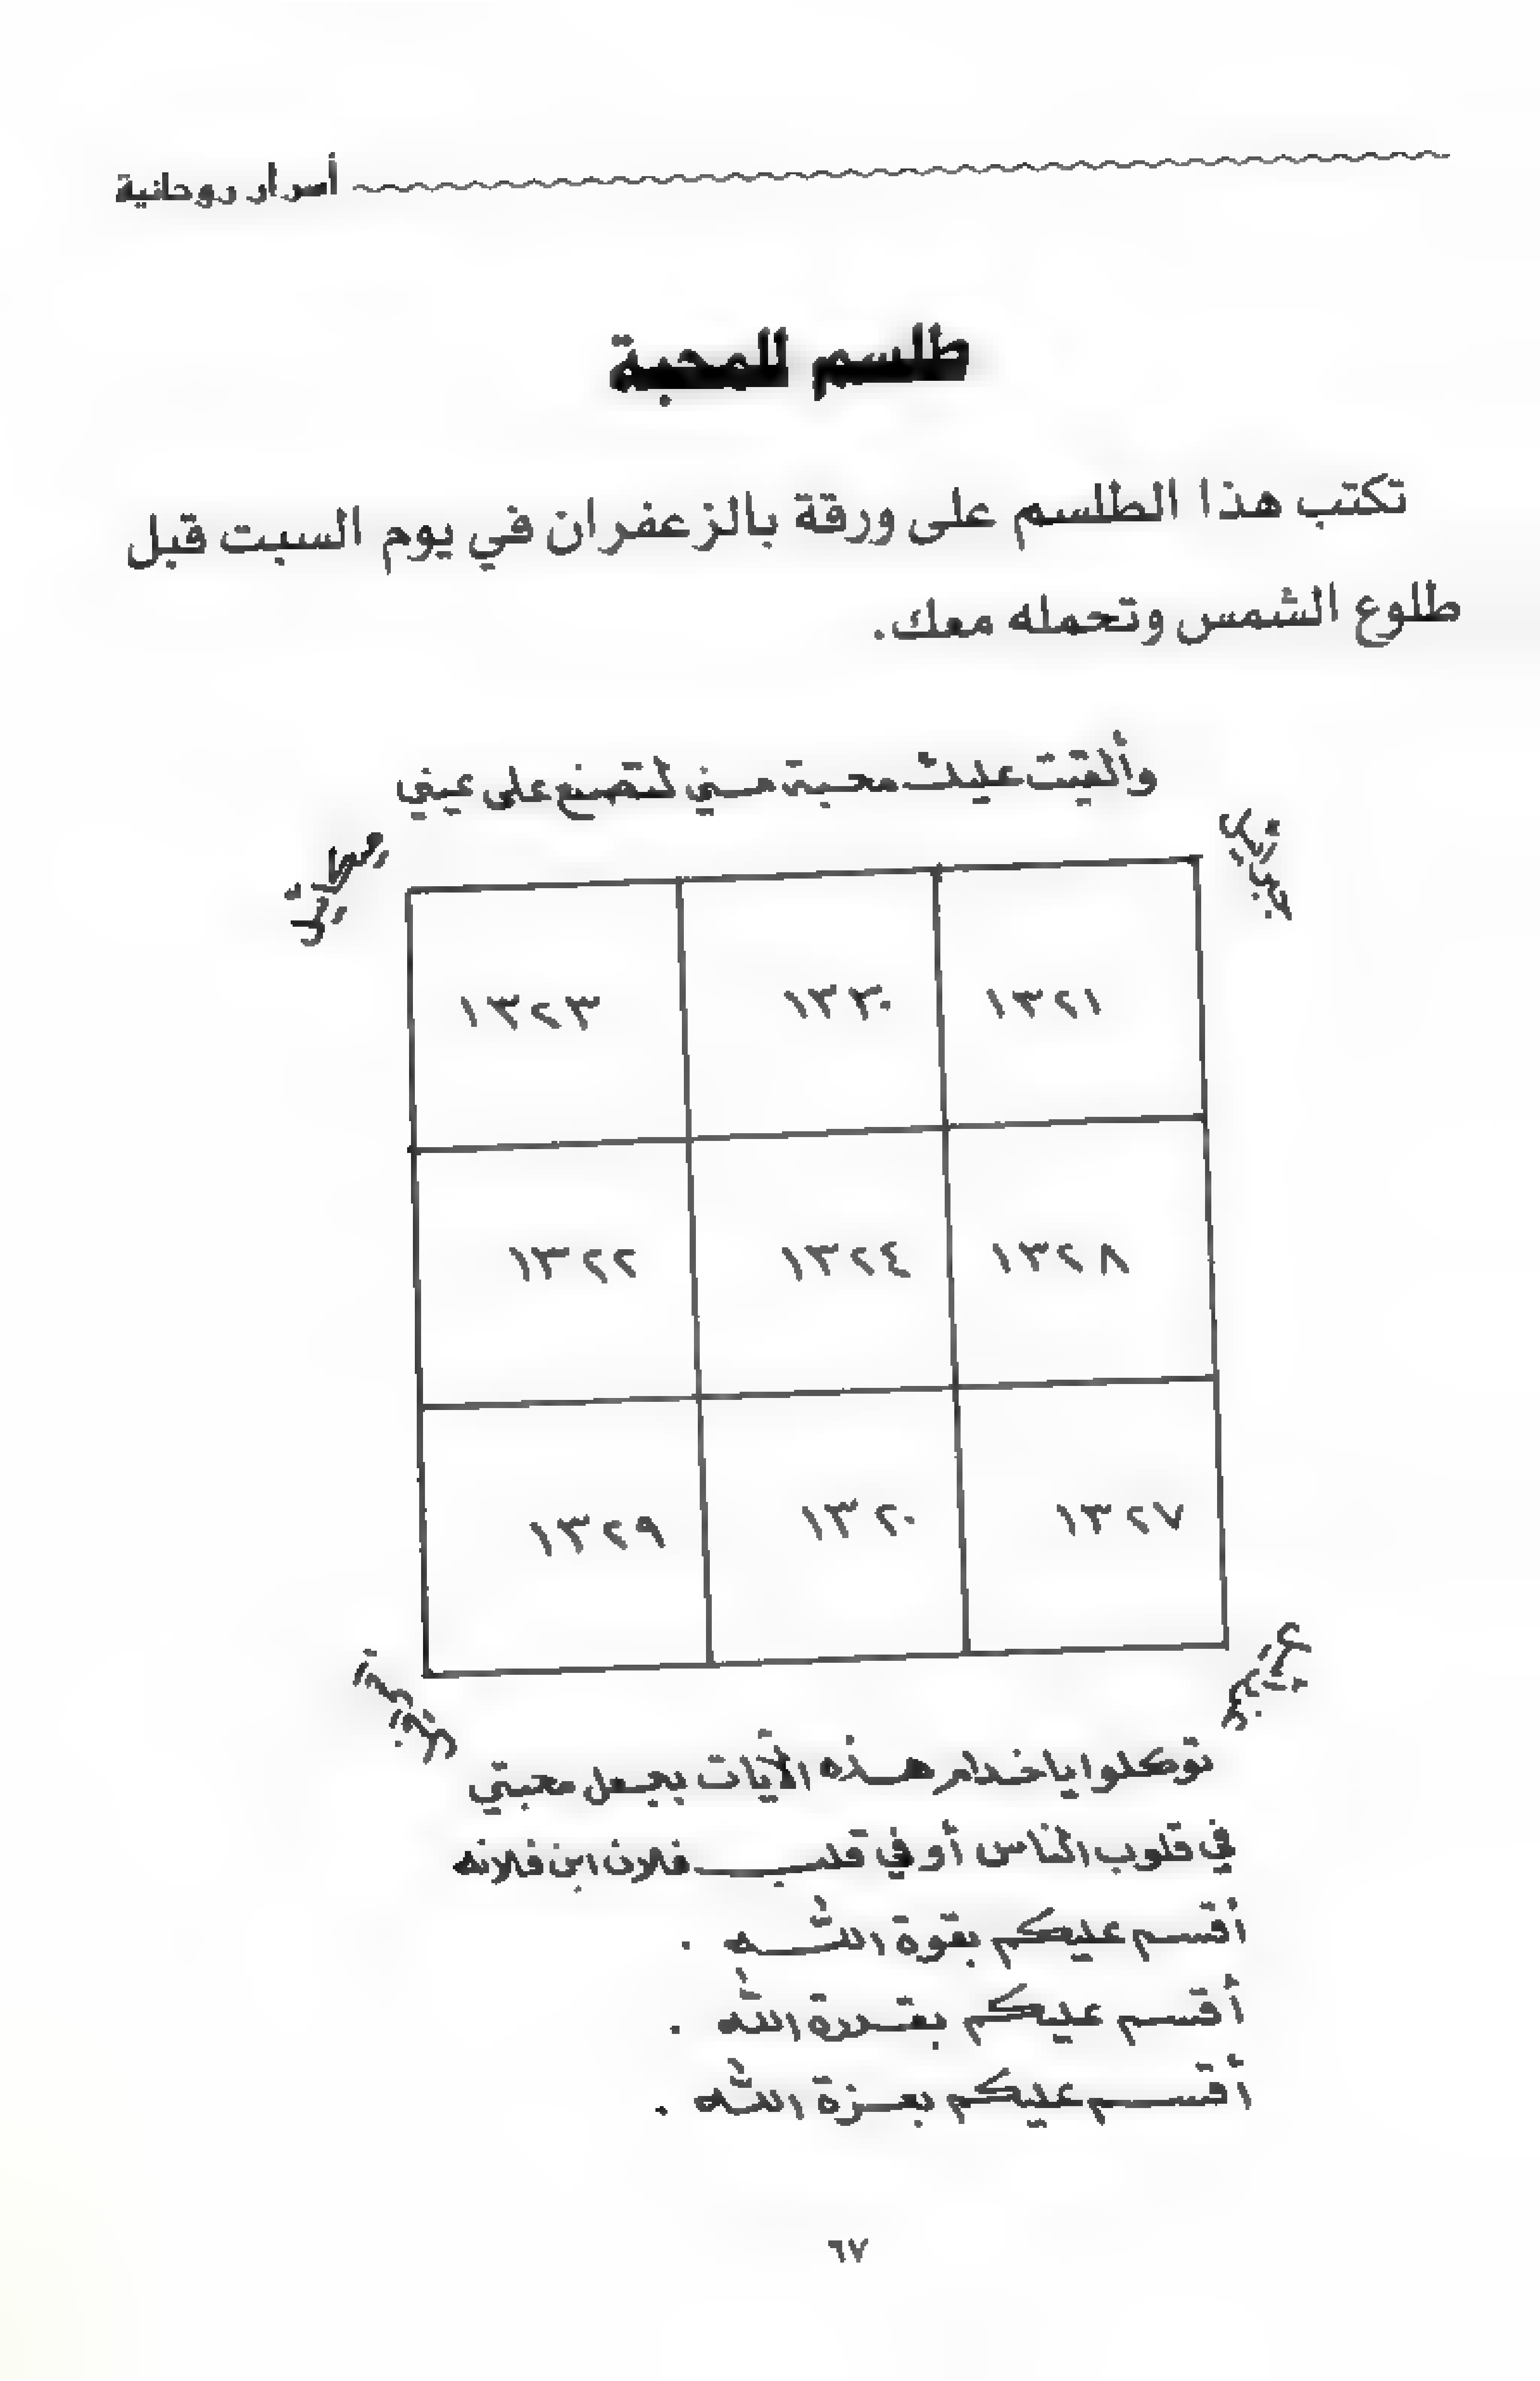 أسرار روحانية
طلسم للمحبة
تكتب هذا الطلسم على ورقة بالزعفران في يوم السبت قبل
طلوع الشمس وتحمله معك.
وألقيت عليك محبة مني لتصنع على عيني
جبرائيل ميكائيل
١٣٢١ ١٣٣٠ ١٣٢٣
١٣٢٨ ١٣٢٤ ١٣٢٢
١٣٢٧ ١٣٢٠ ١٣٢٩
توكلوا يا خدام هذه الآيات بجعل محبتي
في قلوب الناس أو في قلب فلان ابن فلانه
أقسم عليكم بقوة الله .
أقسم عليكم بقدرة الله .
أقسم عليكم بعزة الله .
٦٧